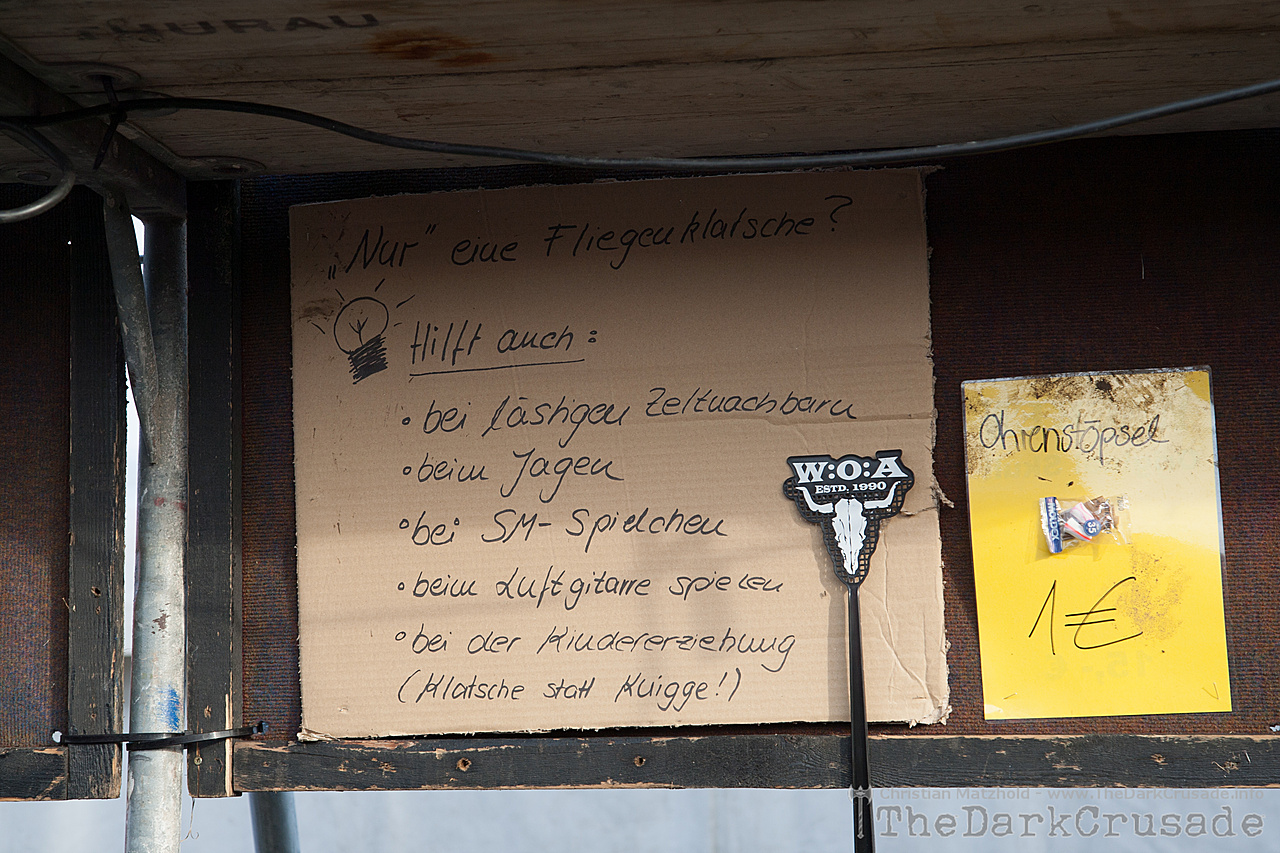 HURAU
„Nur" eine Fliegenklatsche?
Hilft auch:
• bei lästigen Zeltnachbarn
• beim Jagen
• bei SM-Spielchen
• beim Luftgitarre spielen
• bei der Kindererziehung
(Klatsche statt Knigge!)
W:O:A
ESTD. 1990
Ohrenstöpsel
MOLDEX
35
1€
Christian Matzhold - www.TheDarkCrusade.info
TheDarkCrusade